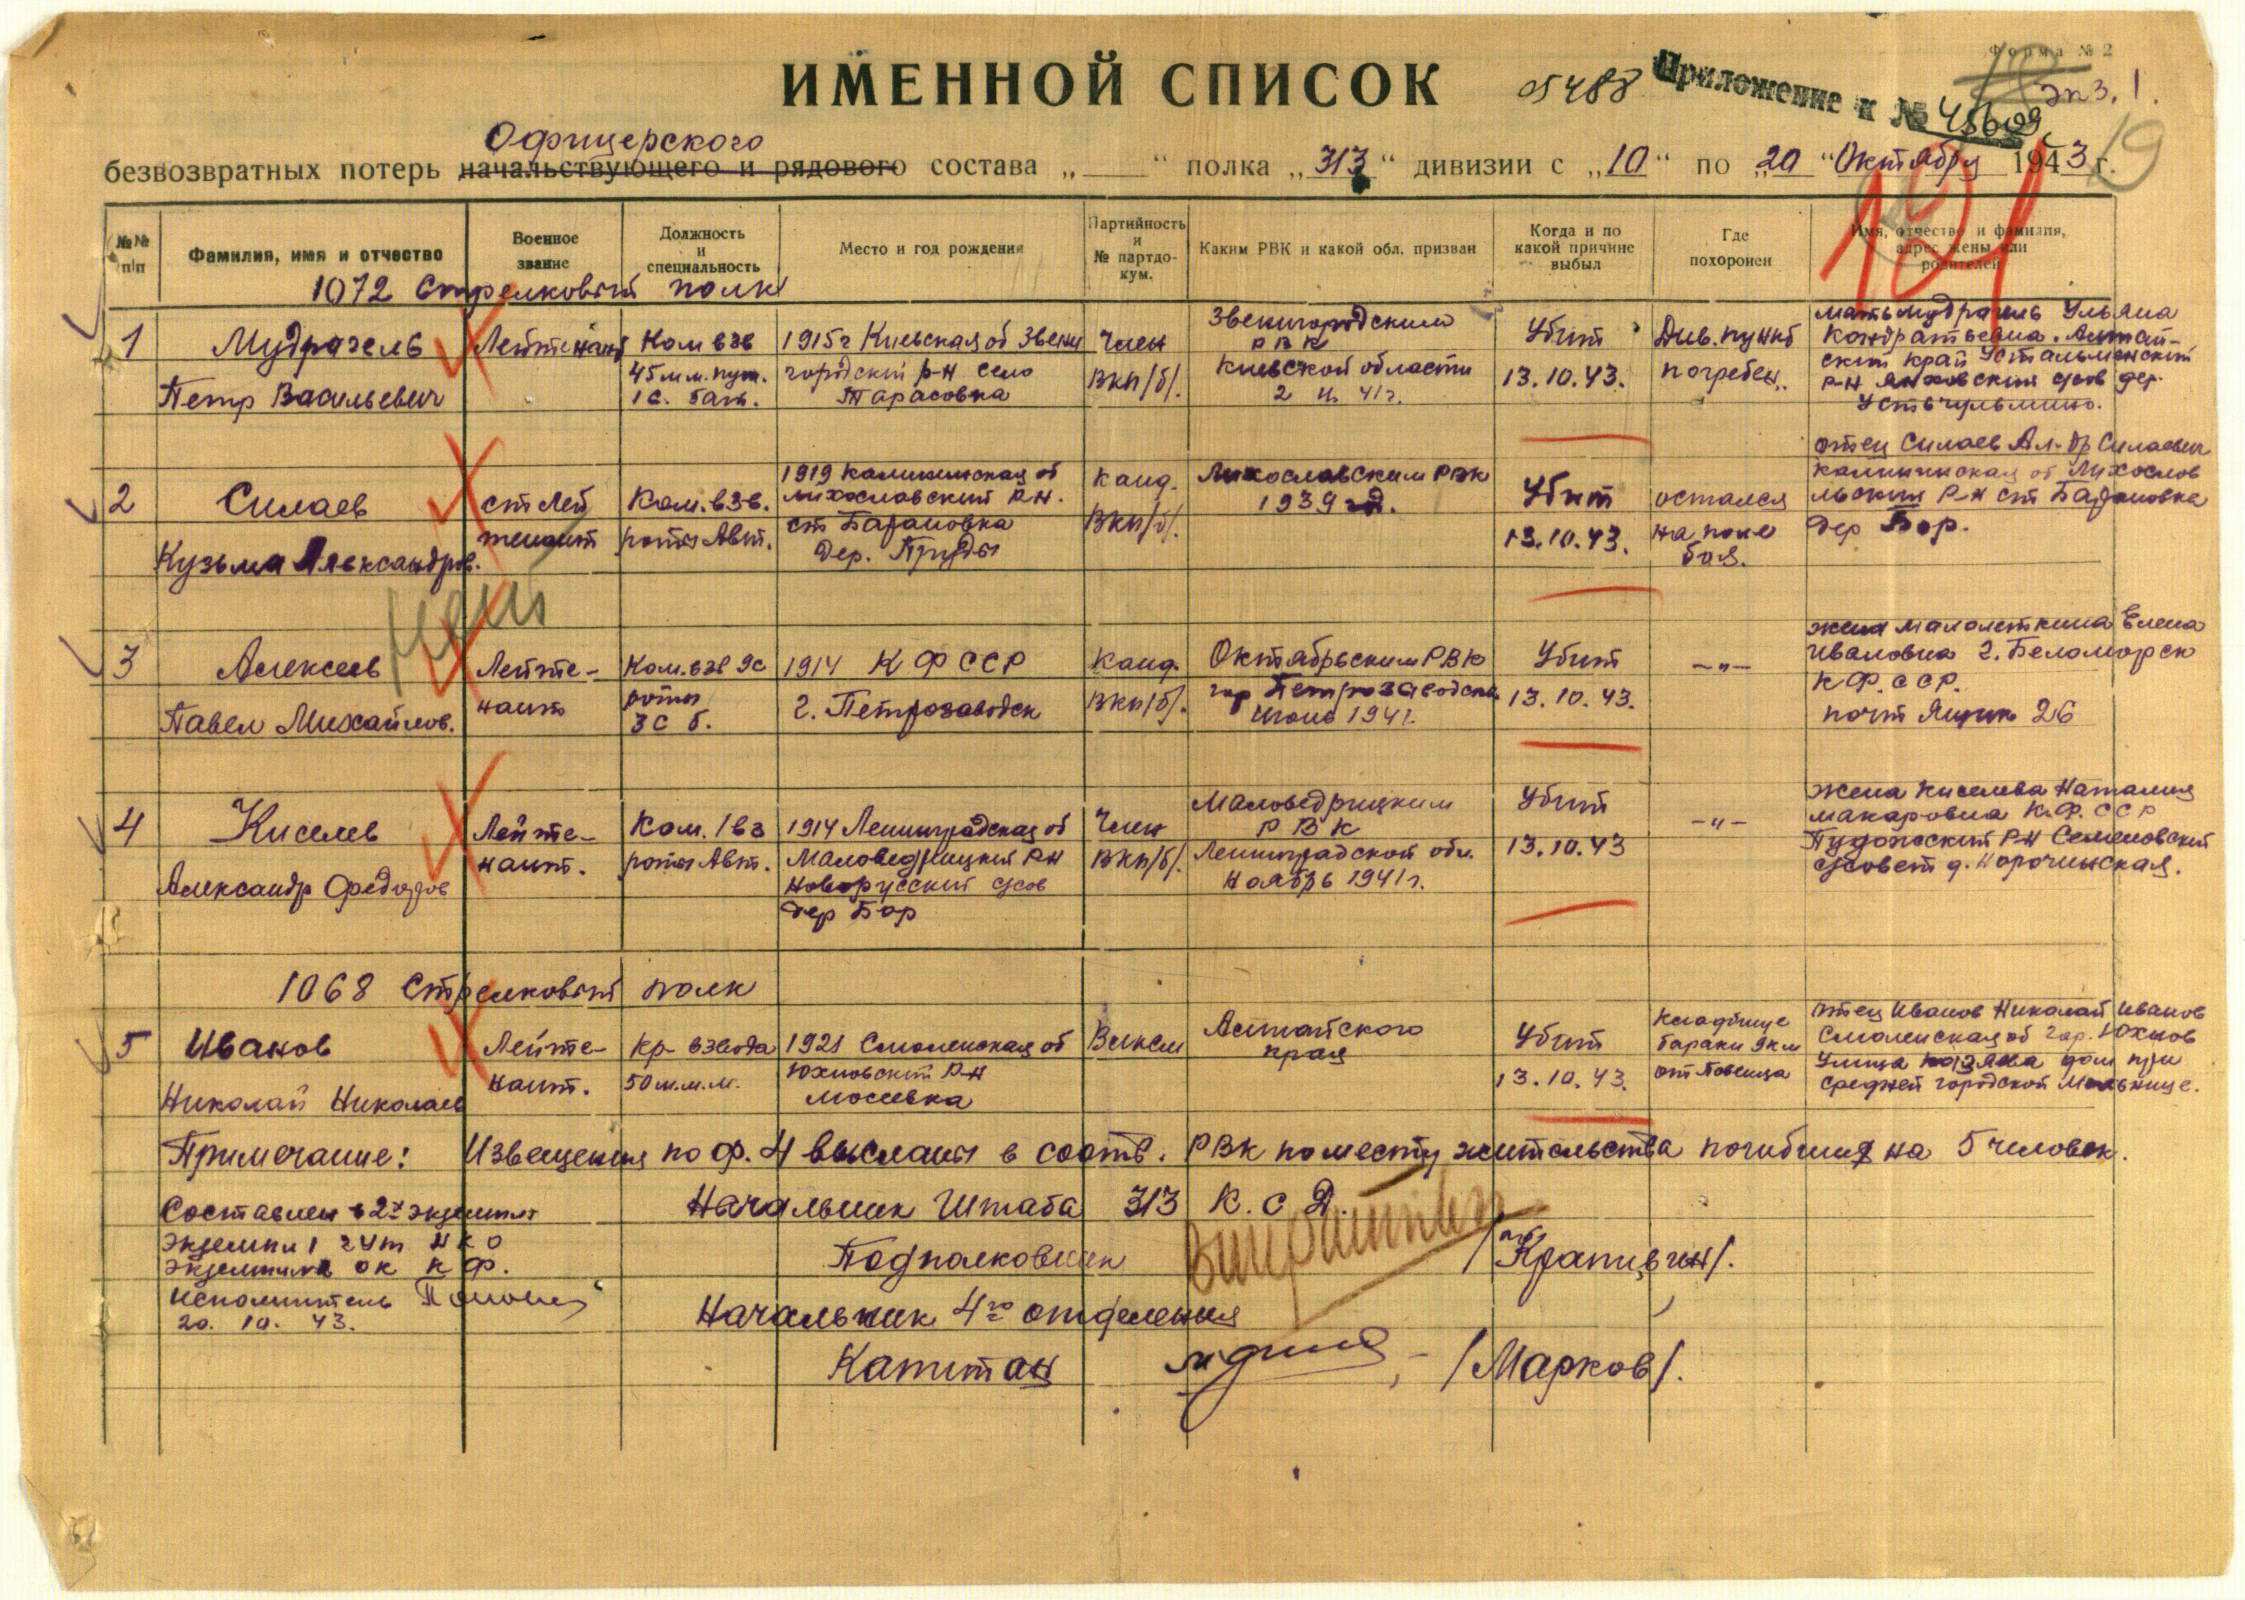 Форма № 2
ИМЕННОЙ СПИСОК
05488
Приложение к № 45609
экз. 1.
19
Офицерского
безвозвратных потерь начальствующего и рядового состава „ “ полка „313“ дивизии с „10“ по „20“ Октябру 1943 г.
№№ п/п
Фамилия, имя и отчество
Военное звание
Должность и специальность
Место и год рождения
Партийность и № партдокум.
Каким РВК и какой обл. призван
Когда и по какой причине выбыл
Где похоронен
Имя, отчество и фамилия, адрес жены или родителей
1072 Стрелковый полк
1
Мудрагель
Петр Васильевич
Лейтенант
Ком взв
45 м.м. пуш.
1 с. бат.
1915г Киевская об Звени
городский р-н село
Тарасовка
Член
ВКП/б/.
Звенигородским
РВК
Киевской области
1941г.
Убит
13.10.43.
Див. пункт
погребен.
мать Мудрагель Ульяна
Кондратьевна. Алтай-
ский край Устальменский
р-н сов дер.
2
Силаев
Кузьма Александров.
ст Лей
тенант
Ком. взв.
роты Авт.
1919 Калининская об
Лихославский р-н.
ст Барановка
дер. Пруды
Канд.
ВКП/б/.
Лихославским РВК
1939 год.
Убит
13.10.43.
остался
на поле
боя.
отец Силаев Ал-др Силаевич
Калининская об Лихослов
льский р-н ст Барановка
дер Бор.
3
Алексеев
Павел Михайлов.
Лейте-
нант
Ком. взв 9с
роты
3 с б.
1914 К Ф ССР
г. Петрозаводск
Канд.
ВКП/б/.
Октябрьским РВК
гор Петрозаводска
Июнь 1941г.
Убит
13.10.43.
—„—
жена Малолеткина Елена
Ивановна г. Беломорск
К.Ф. ССР.
почт Ящик 26
4
Киселев
Александр Федоров
Лейте-
нант.
Ком. 1 вз
роты Авт.
1914 Ленинградская об
Маловедрицкий р-н
Новорусский с/сов
дер Бор
Член
ВКП/б/.
Маловедрицким
РВК
Ленинградской обл.
Ноябрь 1941г.
Убит
13.10.43
—„—
жена Киселева Наталия
Макаровна К.Ф. ССР
Пудожский р-н Семеновский
с/совет д. Норочинская.
1068 Стрелковый полк
5
Иванов
Николай Николаев
Лейте-
нант.
Кр- взвода
50 м.м.м.
1921 Смоленская об
Юхновский р-н
Мосеевка
Влксм
Алтайского
края
Убит
13.10.43.
Кладбище
бараки 9 км
от Повенца
отец Иванов Николай Иванов
Смоленская об гор. Юхнов
Улица дом при
средней городской Мельнице.
Примечание: Извещения по ф. 4 высланы в соотв. РВК по месту жительства погибших на 5 человек.
Составлен в 2х экземпл
экземпл 1 ГУФ НКО
экземпл 2 ОК К Ф.
исполнитель
20. 10. 43.
Начальник Штаба 313 К. С Д.
Подполковник /Крапивин/.
Начальник 4го отделения
Капитан /Марков/.